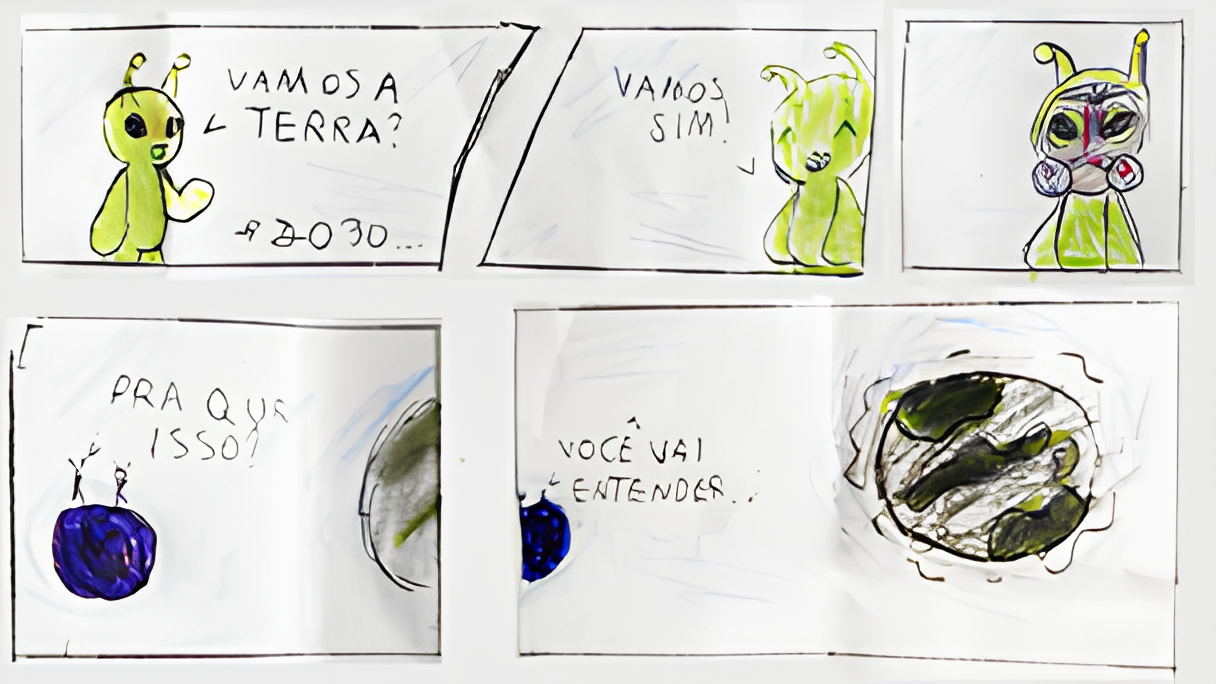 VAMOS A
TERRA?
2030...
VAMOS
SIM!
PRA QUE
ISSO?
VOCÊ VAI
ENTENDER...